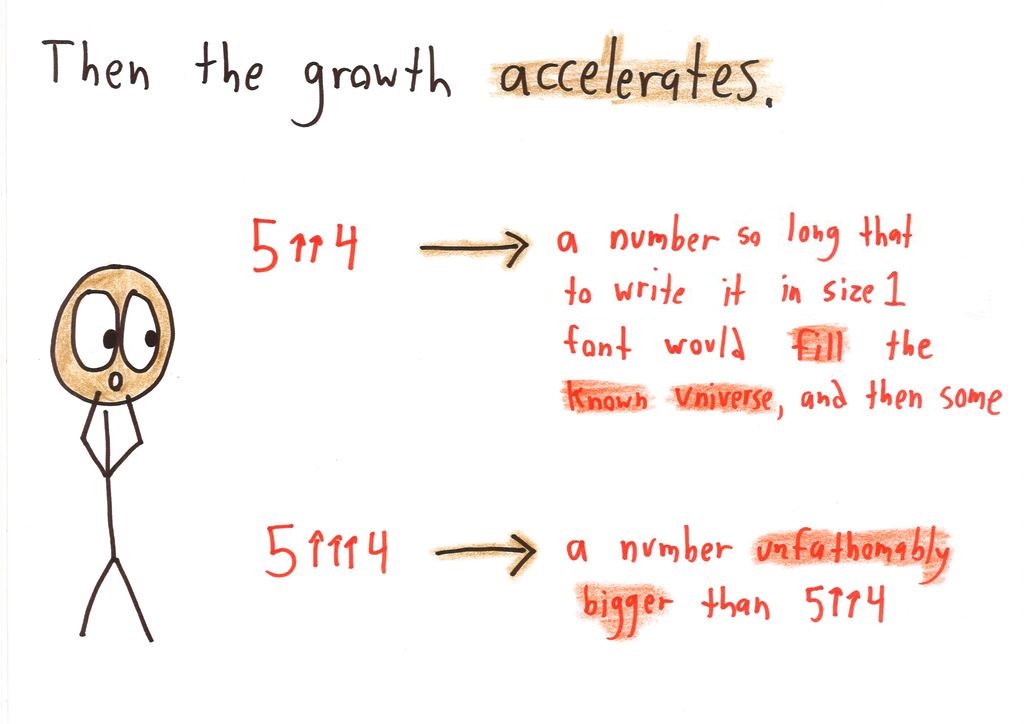 Then the growth accelerates.
5↑↑4 → a number so long that
to write it in size 1
font would fill the
known universe, and then some
5↑↑↑4 → a number unfathomably
bigger than 5↑↑4